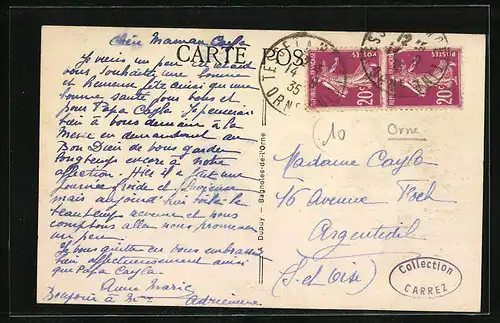 Chère Maman Cayla
Je viens un peu en retard
vous souhaiter une bonne
et heureuse fête ainsi que une
bonne santé pour vous et
pour Papa Cayla. Je penserai
bien à vous demain à la
Messe en demandant au
Bon Dieu de vous garder
longtemps encore à notre
affection. Hier il a fait une
journée froide et
mais aujourd'hui voilà le
beau temps revenu et nous
comptons aller nous promener
un peu
Je vous quitte en vous embrassant
bien affectueusement ainsi
que Papa Cayla.
Anne Marie
Bonjour à Mme Adrienne
CARTE POS
Dupuy - Bagnoles-de-l'Orne
14
35
ORNE
12
POSTES
20c
POSTES
20c
10
Orne
Madame Cayla
16 Avenue Foch
Argenteuil
(S. et Oise)
Collection
CARREZ